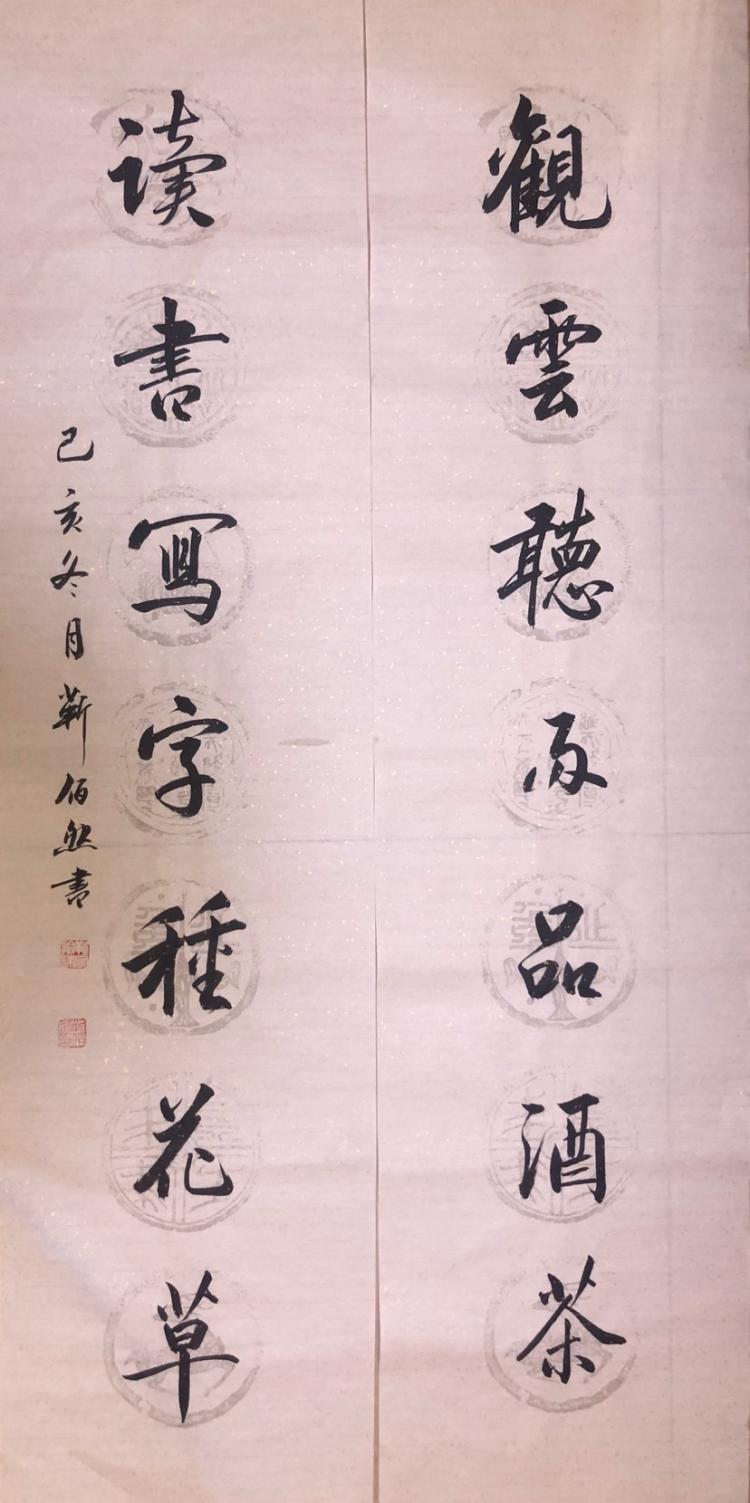 觀雲聽雨品酒茶
读書寫字種花草
己亥冬月靳佰然書